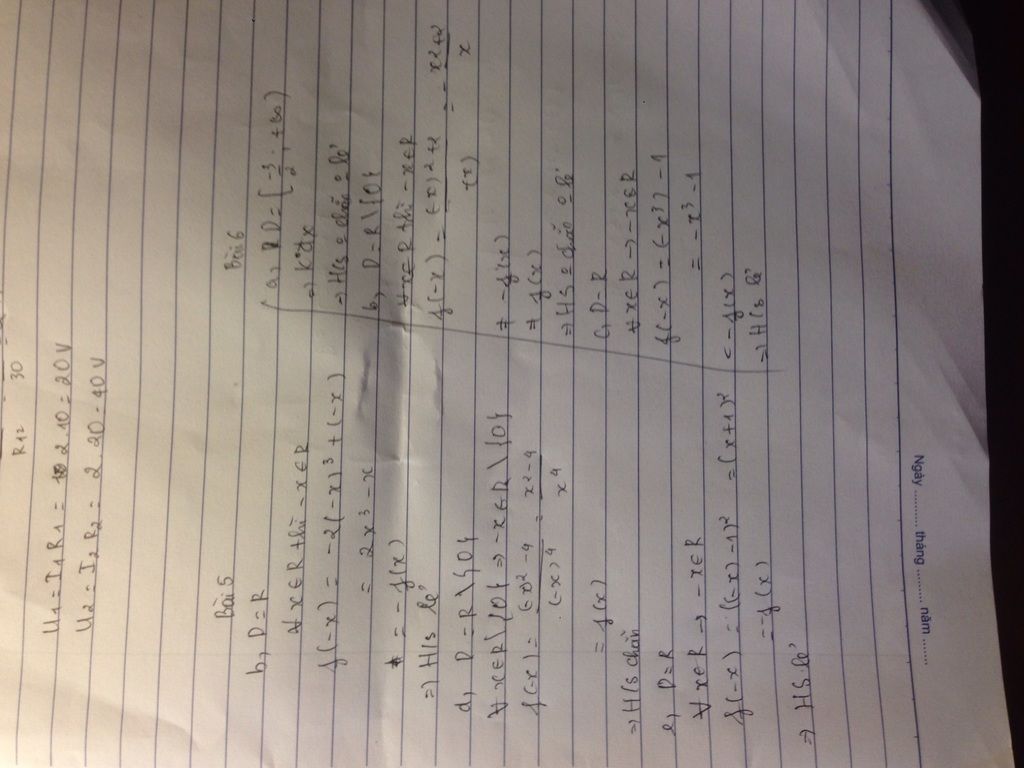 R12 30
U1 = I1 R1 = 2.10 = 20V
U2 = I2 R2 = 2.20 = 40V
Bài 5
b, D = R
∀x∈R thì -x∈R
f(-x) = -2(-x)³ + (-x)
= 2x³ - x
= -f(x)
=) H/s lẻ
d, D = R \ {0}
∀x∈R \ {0} => -x∈R \ {0}
f(-x) = (-x)² - 4 / (-x)⁴ = x² - 4 / x⁴
= f(x)
=> H/s chẵn
e, D = R
∀x∈R → -x∈R
f(-x) = ((-x) - 1)² = (x+1)²
= -f(x)
=> HS lẻ
Bài 6
a, D = [-3/2; +∞)
=) K°đx
=> H/s o chẵn o lẻ
b, D = R \ {0}
∀x∈R thì -x∈R
f(-x) = (-x)² + 2 / (x) = - x² + 2 / x
≠ -f(x)
≠ f(x)
=> HS o chẵn o lẻ
c, D = R
∀x∈R → -x∈R
f(-x) = (-x³) - 1
= -x³ - 1
= -f(x)
=> H/s lẻ
Ngày ......... tháng ......... năm .......